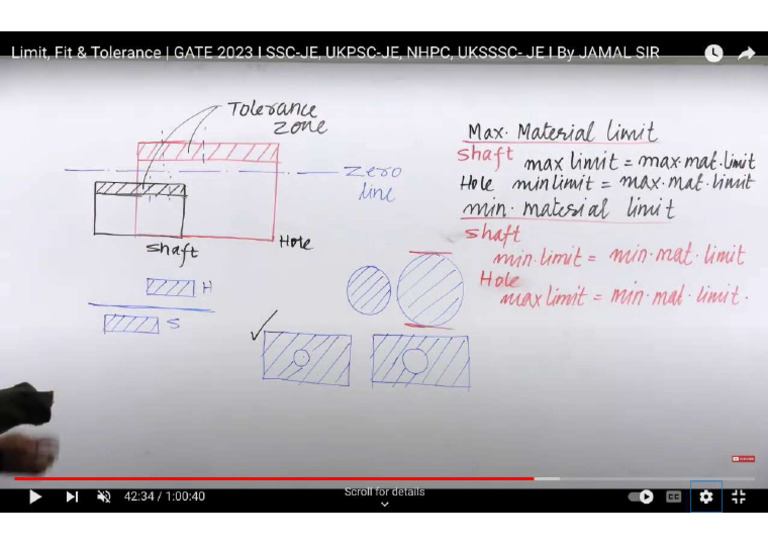 Limit, Fit & Tolerance | GATE 2023 I SSC-JE, UKPSC-JE, NHPC, UKSSSC- JE I By JAMAL SIR
Tolerance
zone
zero
line
Shaft
Hole
H
S
Max. Material limit
Shaft
max limit = max.mat.limit
Hole min limit = max.mat.limit
min. material limit
Shaft
min.limit = min.mat.limit
Hole
max limit = min.mat.limit.
42:34 / 1:00:40
Scroll for details
CC